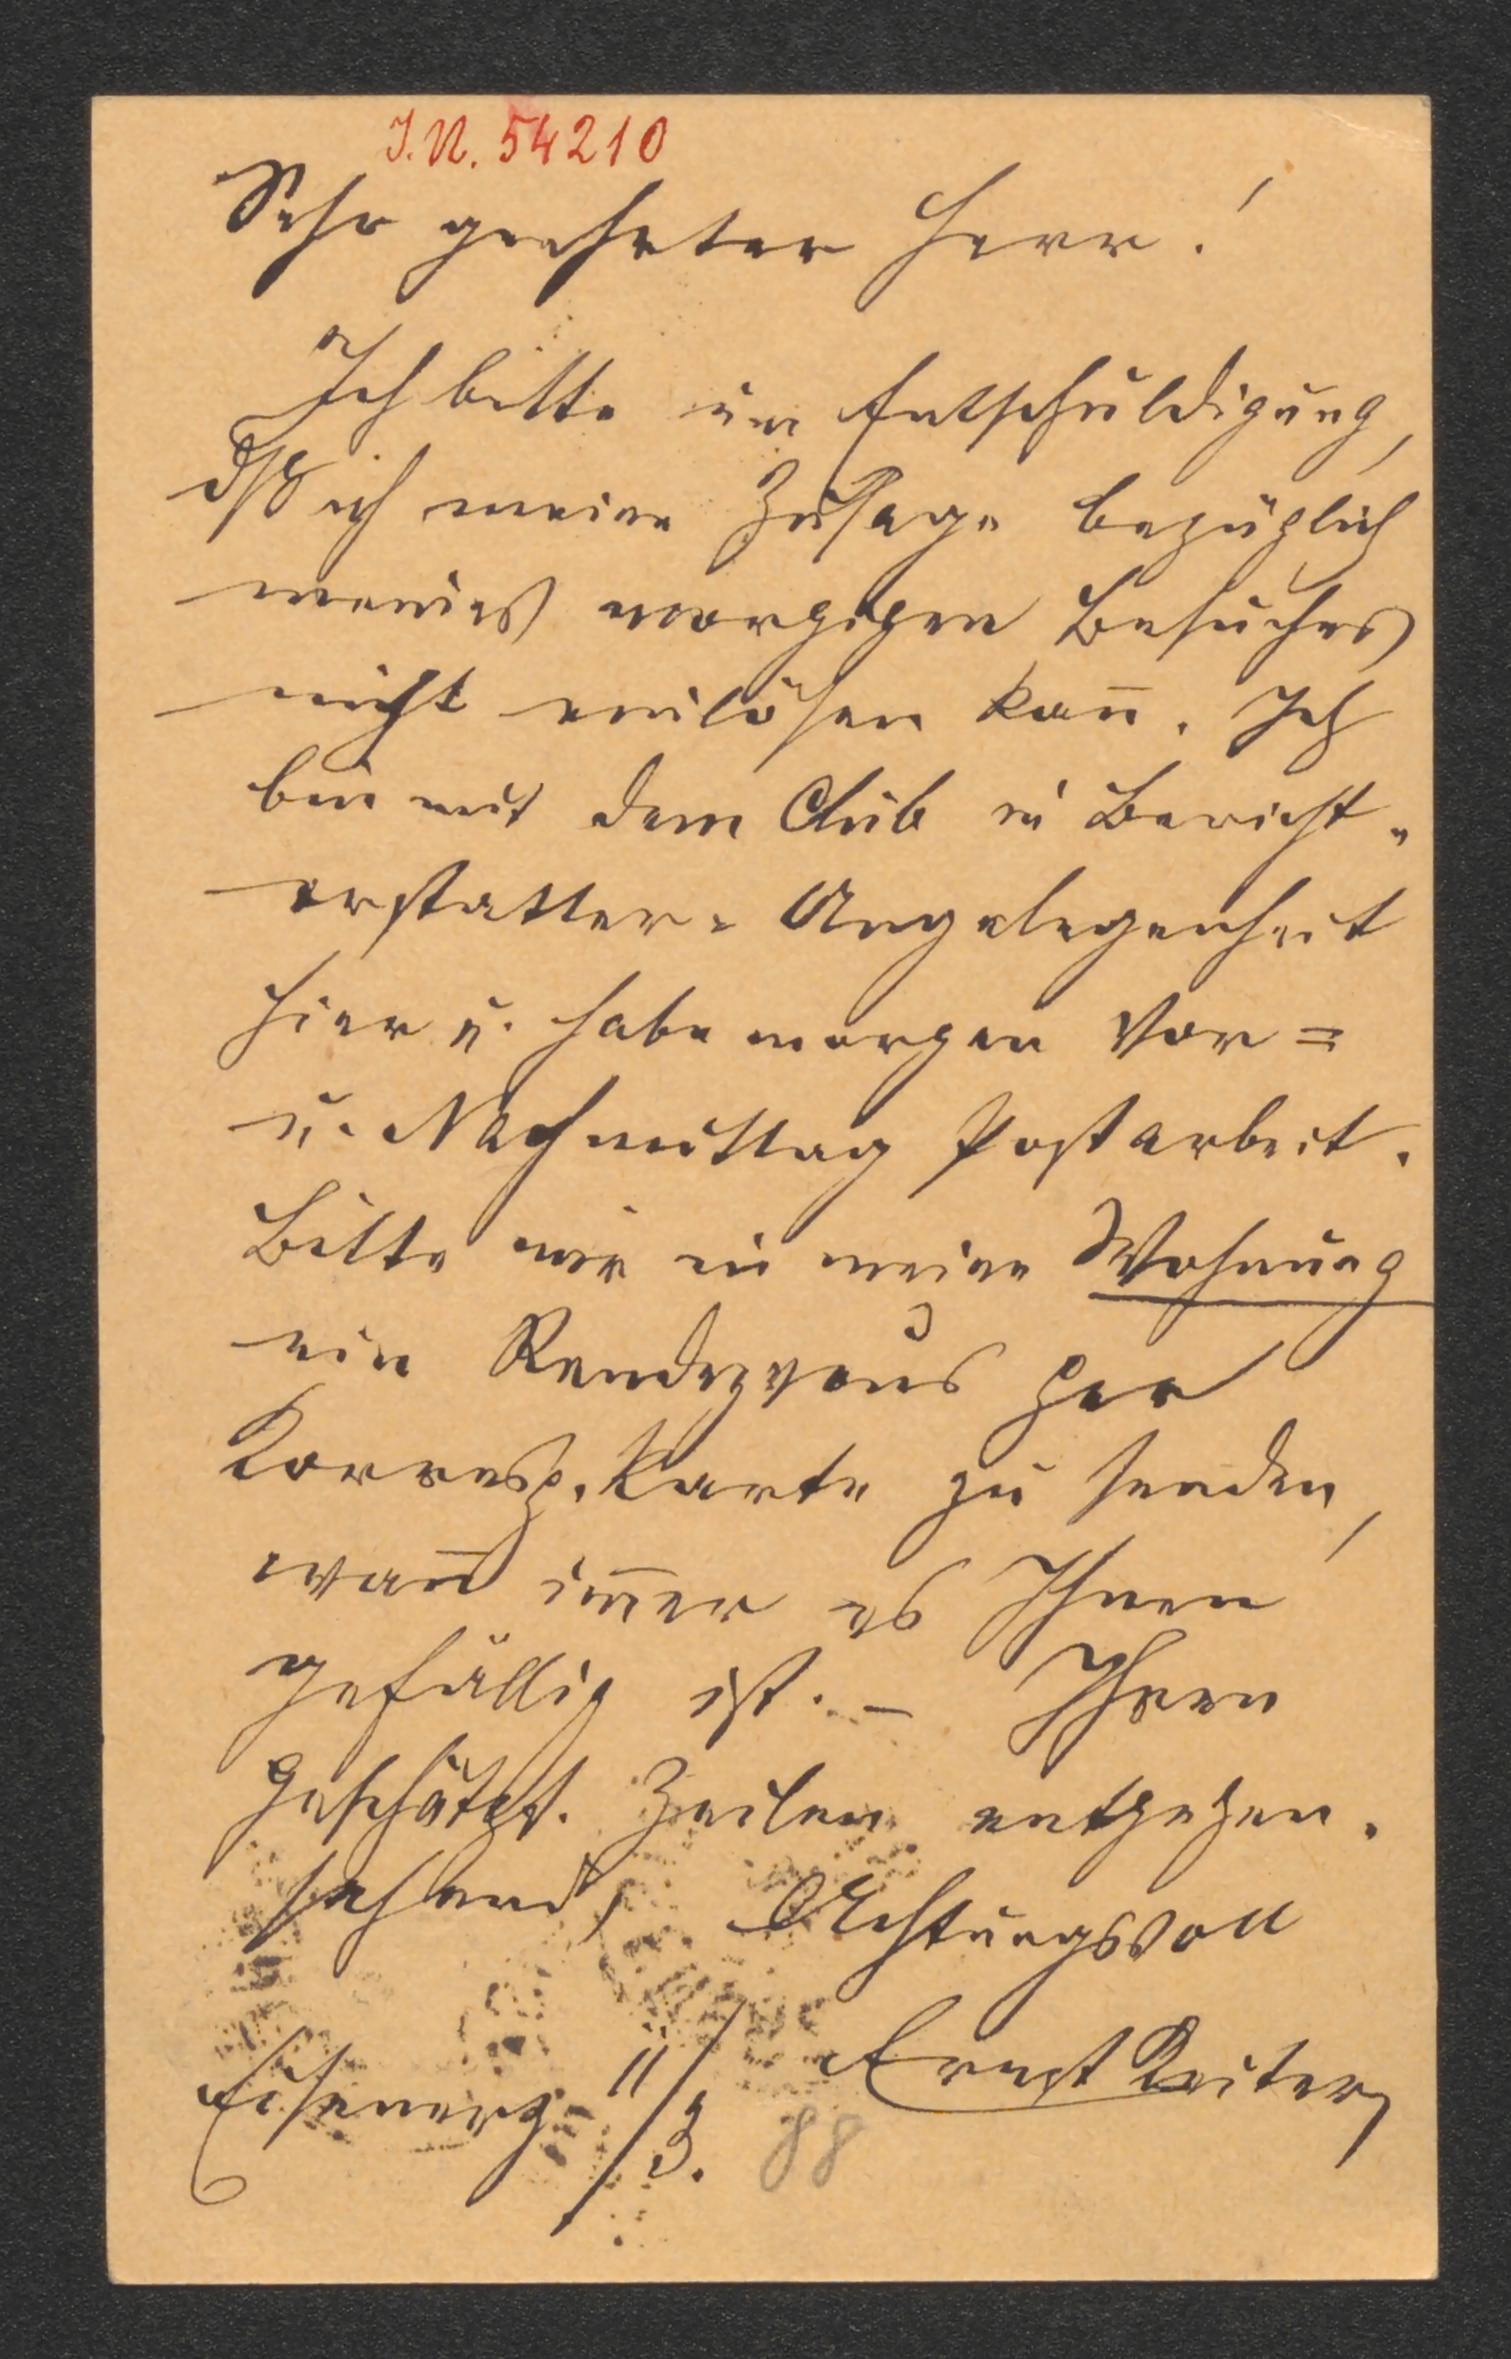 I. N. 54210
Sehr geehrter Herr!
Ich bitte um Entschuldigung,
dß ich meine Zusage bezüglich
meines morgigen Besuches
nicht einlösen kan̄. Ich
bin mit dem Club in Bericht-
erstatter-Angelegenheit
hier u. habe morgen Vor=
u. Nachmittag Postarbeit.
Bitte mir in meine Wohnung
ein Rendezvous per
Korresp. Karte zu senden,
wan̄ im̄er es Ihnen
gefällig ist. – Ihren
geschätzt. Zeilen entgegen-
sehend, Achtungsvoll
Ernst Reiter
Eisenerz 11/3. 88